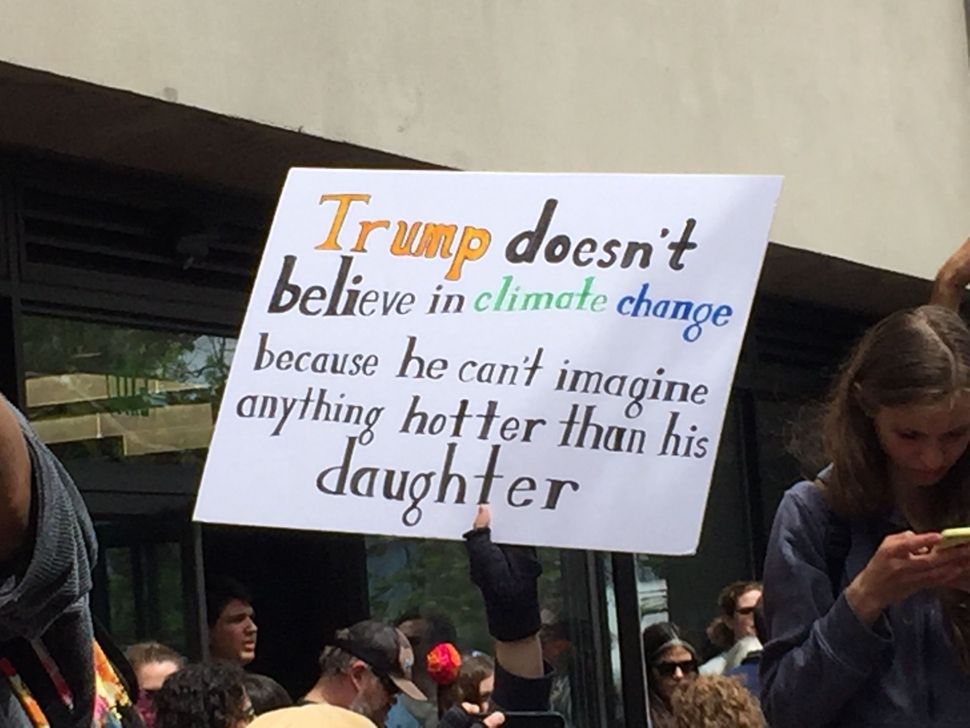 Trump doesn't
believe in climate change
because he can't imagine
anything hotter than his
daughter